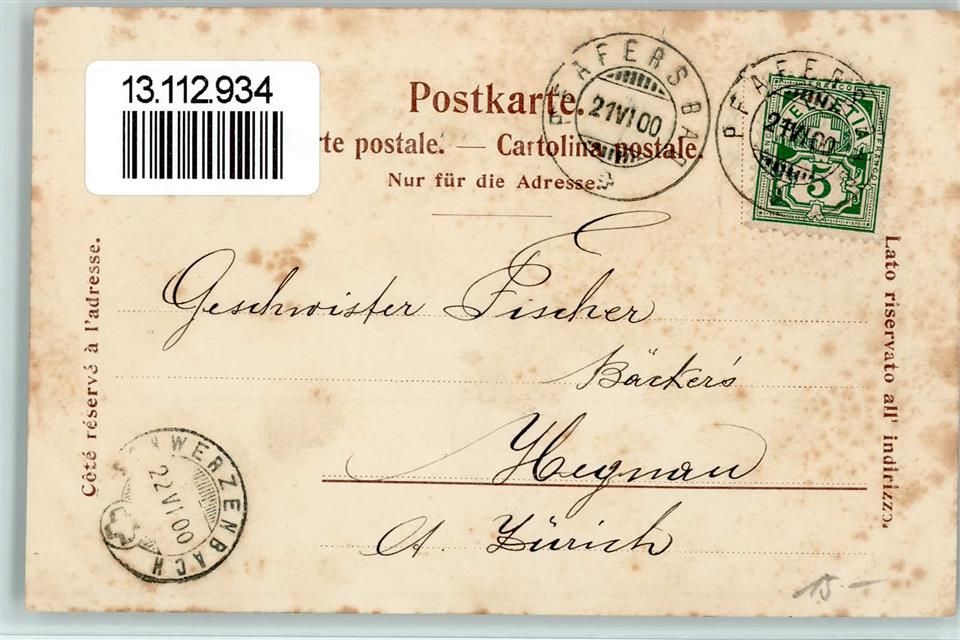 13.112.934
Postkarte.
rte postale. — Cartolina postale.
Nur für die Adresse.
PFAFERS BAD
21 VI 00
PFAEFERS
21 VI 00
HELVETIA
5
Côté réservé à l'adresse.
Lato riservato all' indirizzo.
Geschwister Fischer
Bäcker's
Hegnau
Ct. Zürich
SCHWERZENBACH
22 VI 00
15.–